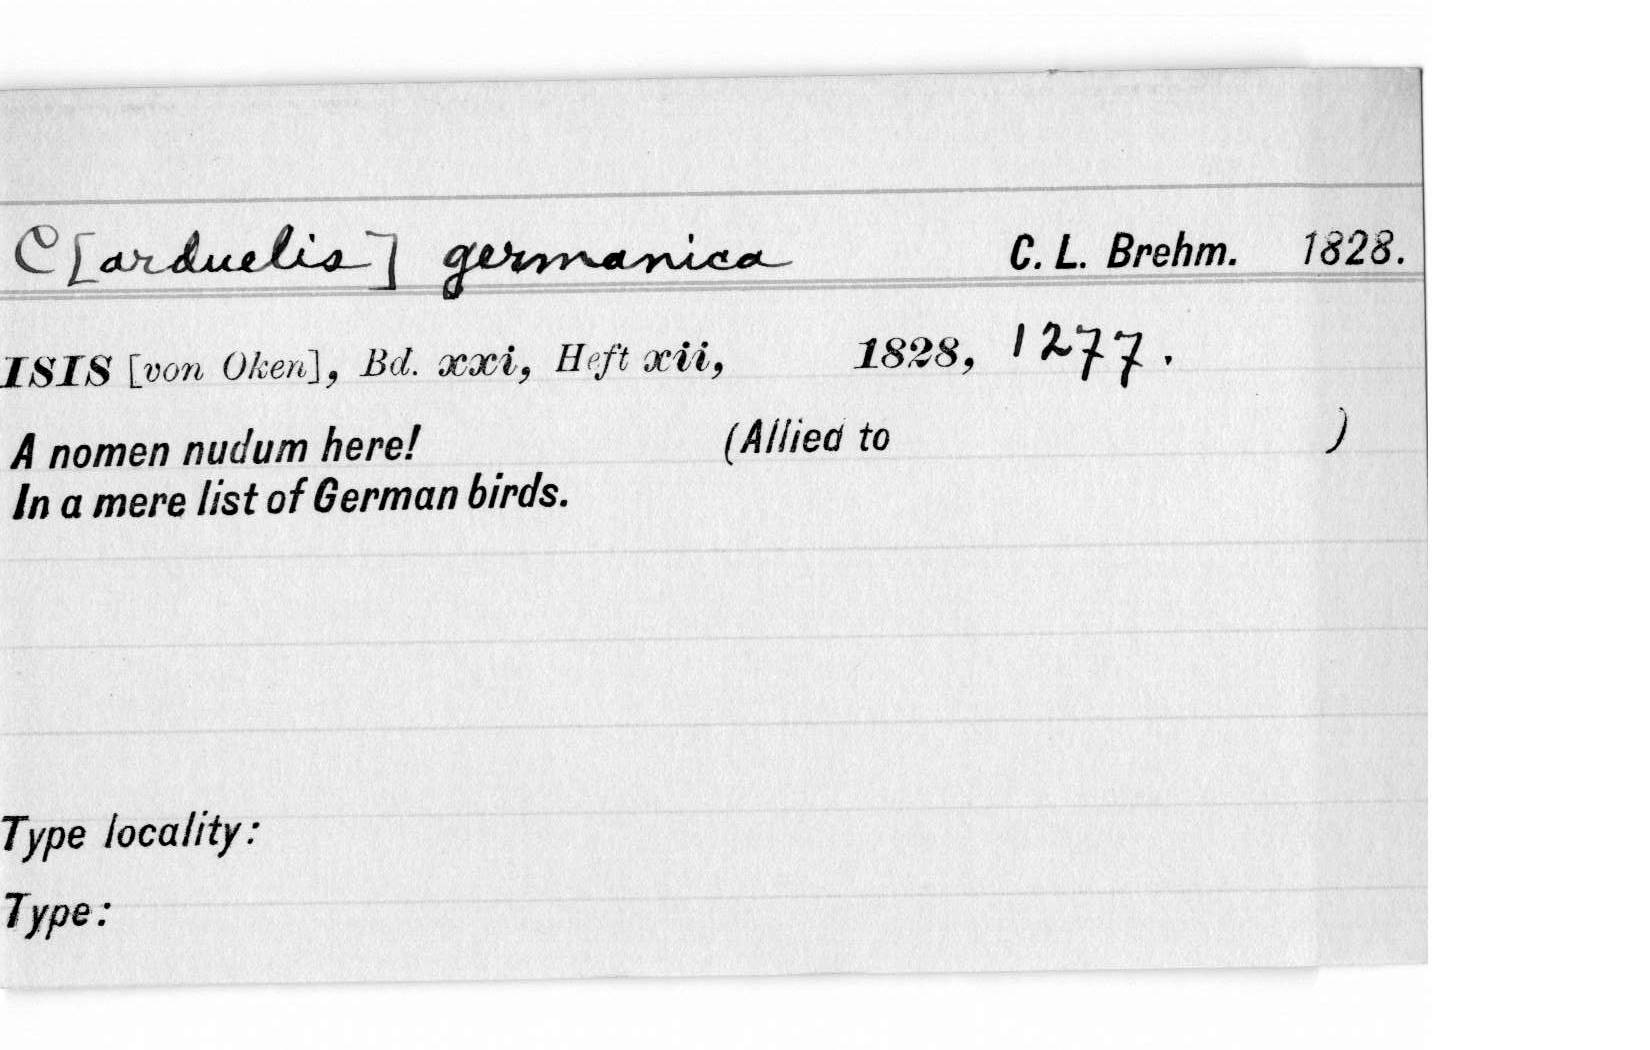 C[arduelis] germanica C. L. Brehm. 1828.
ISIS [von Oken], Bd. xxi, Heft xii, 1828, 1277.
A nomen nudum here! (Allied to )
In a mere list of German birds.
Type locality:
Type: